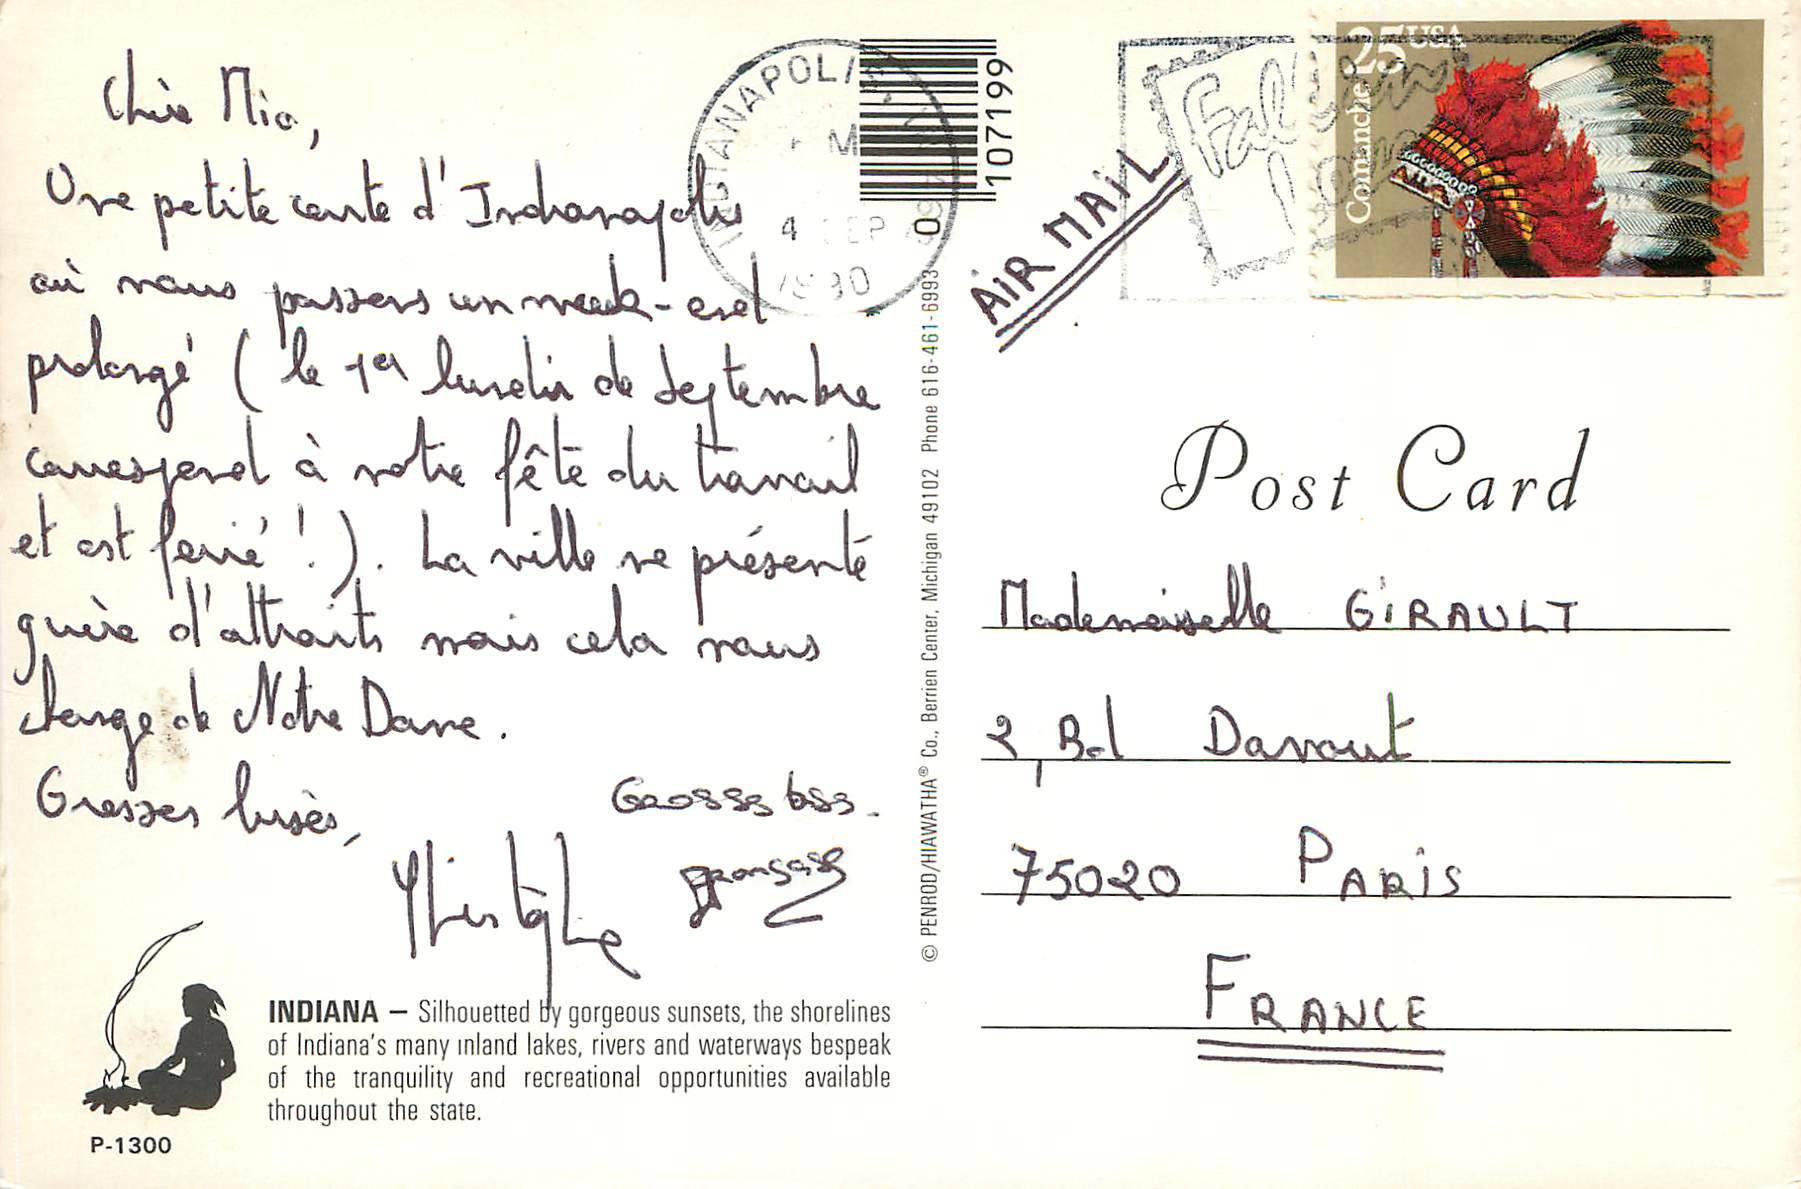 Chère Mia,
Une petite carte d'Indianapolis
où nous passons un week-end
prolongé (le 1er lundi de septembre
correspond à notre fête du travail
et est ferié !). La ville ne présente
guère d'attraits mais cela nous
change de Notre Dame.
Grosses bises,
Grosses bss.
INDIANA – Silhouetted by gorgeous sunsets, the shorelines
of Indiana's many inland lakes, rivers and waterways bespeak
of the tranquility and recreational opportunities available
throughout the state.
P-1300
INDIANAPOLIS,
M
4 SEP
1990
0 107199
© PENROD/HIAWATHA® Co., Berrien Center, Michigan 49102 Phone 616-461-6993
AIR MAIL
25 USA
Comanche
Post Card
Mademoiselle GIRAULT
2, Bd Davout
75020 PARIS
FRANCE